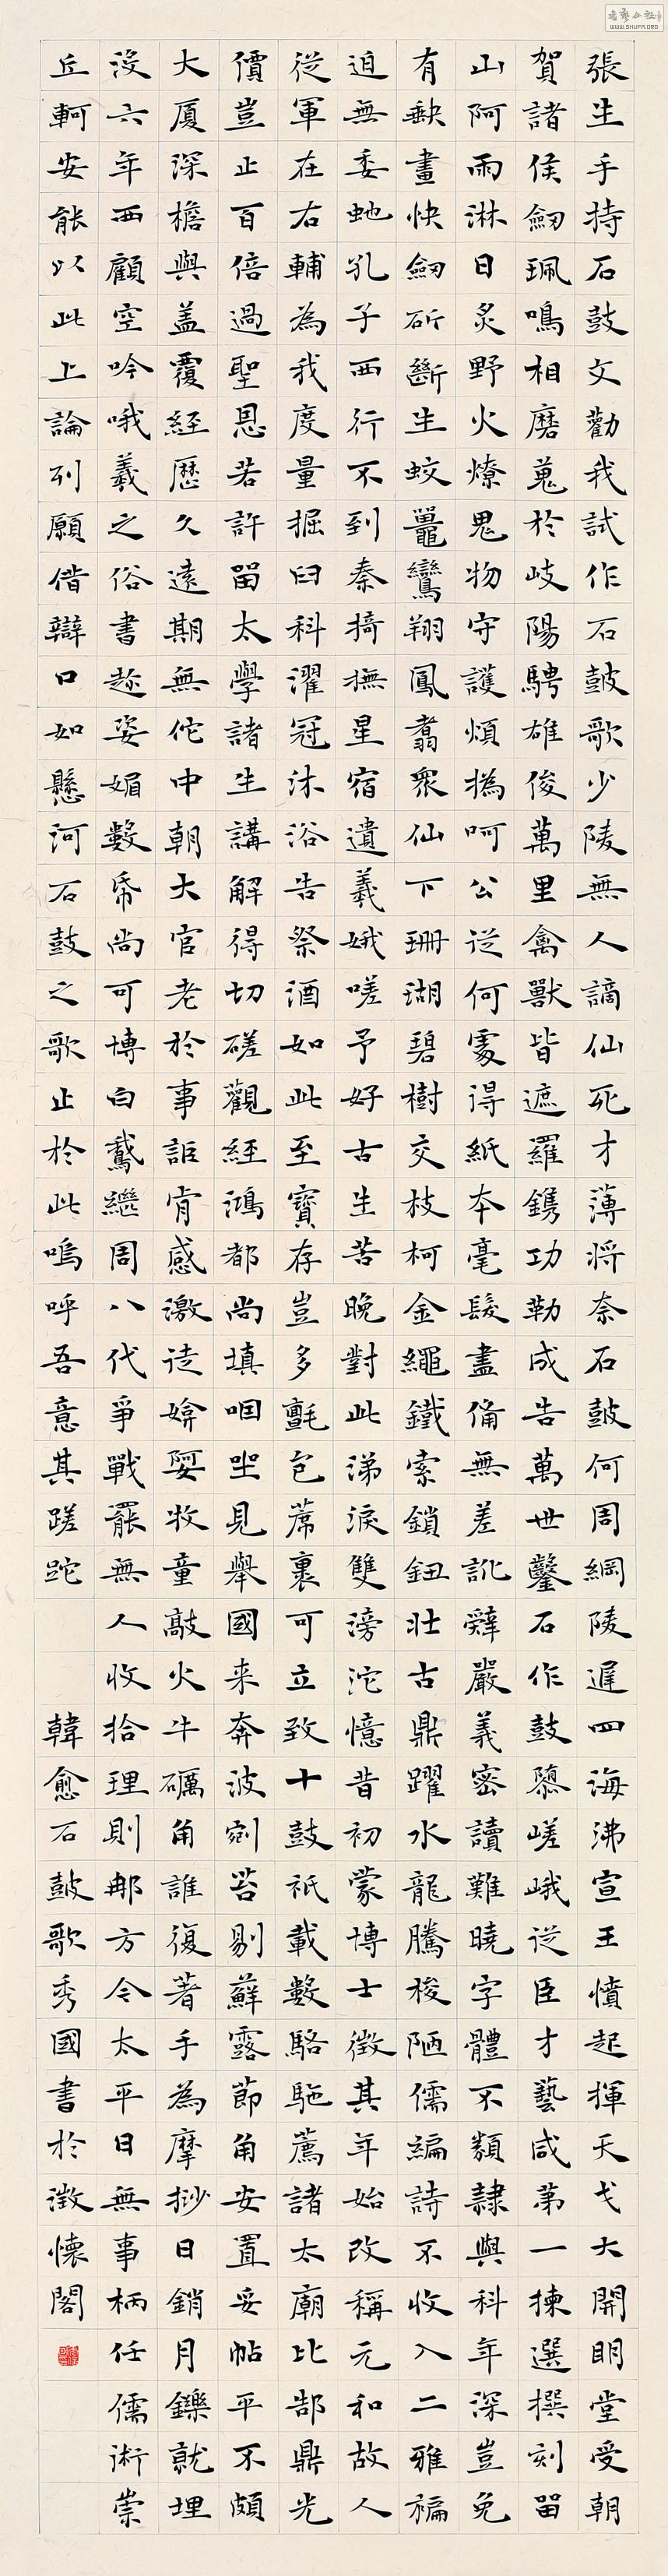 張生手持石鼓文勸我試作石鼓歌少陵無人謫仙死才薄將奈石鼓何周綱陵遲四海沸宣王憤起揮天戈大開明堂受朝
賀諸侯劒珮鳴相磨蒐於岐陽騁雄俊萬里禽獸皆遮羅鐫功勒成告萬世鑿石作鼓隳嵯峨從臣才藝咸第一揀選撰刻留
山阿雨淋日炙野火燎鬼物守護煩撝呵公從何處得紙本毫髮盡備無差訛辭嚴義密讀難曉字體不類隸與科年深豈免
有缺畫快劒斫斷生蛟鼉鸞翔鳳翥眾仙下珊瑚碧樹交枝柯金繩鐵索鎖鈕壯古鼎躍水龍騰梭陋儒編詩不收入二雅褊
迫無委虵孔子西行不到秦掎撫星宿遺羲娥嗟予好古生苦晚對此涕淚雙滂沱憶昔初蒙博士徵其年始改稱元和故人
從軍在右輔為我度量掘臼科濯冠沐浴告祭酒如此至寶存豈多氈包席裹可立致十鼓祇載數駱駞薦諸太廟比郜鼎光
價豈止百倍過聖恩若許留太學諸生講解得切磋觀經鴻都尚填咽坐見舉國来奔波剜苔剔蘚露節角安置妥帖平不頗
大厦深檐與蓋覆經歷久遠期無佗中朝大官老於事詎肯感激徒媕婀牧童敲火牛礪角誰復著手為摩挲日銷月鑠就埋
沒六年西顧空吟哦羲之俗書趂姿媚數帋尚可博白鵞繼周八代爭戰罷無人收拾理則那方今太平日無事柄任儒術崇
丘軻安能以此上論列願借辯口如懸河石鼓之歌止於此嗚呼吾意其蹉跎
韓愈石鼓歌秀國書於澂懷閣
WWW.SHUFA.ORG